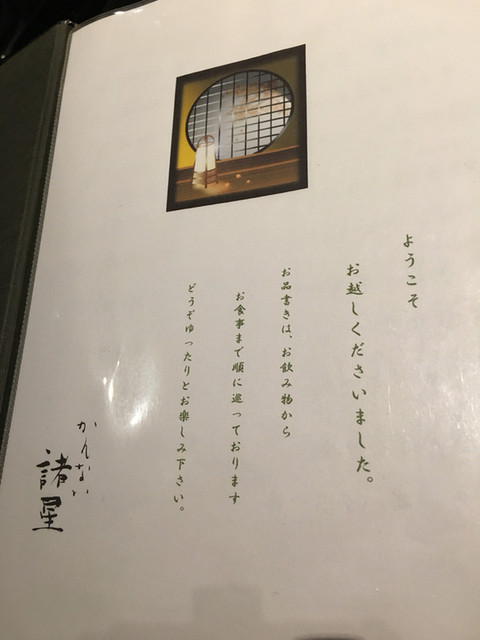 ようこそ
お越しくださいました。
お品書きは、お飲み物から
お食事まで順に巡っております
どうぞゆったりとお楽しみ下さい。
かんない
諸星